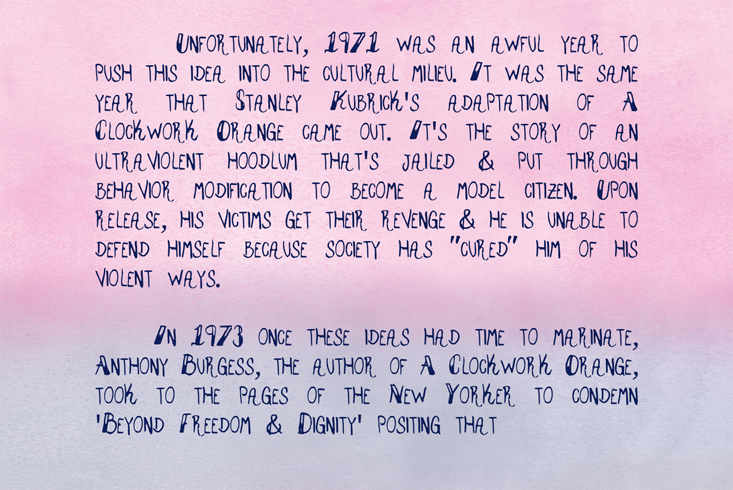 Unfortunately, 1971 was an awful year to
push this idea into the cultural milieu. It was the same
year that Stanley Kubrick's adaptation of A
Clockwork Orange came out. It's the story of an
ultraviolent hoodlum that's jailed & put through
behavior modification to become a model citizen. Upon
release, his victims get their revenge & he is unable to
defend himself because society has "cured" him of his
violent ways.
In 1973 once these ideas had time to marinate,
Anthony Burgess, the author of A Clockwork Orange,
took to the pages of the New Yorker to condemn
'Beyond Freedom & Dignity' positing that